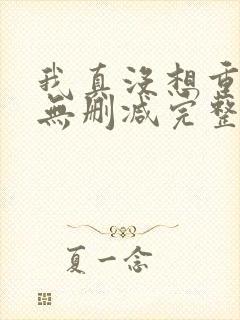 我真没想重
無删减完整
夏一念